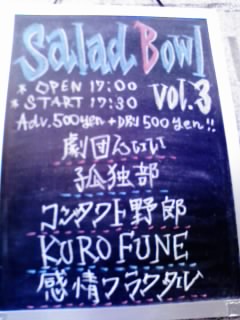 Salad Bowl
* OPEN 17:00
* START 17:30
vol.3
Adv. 500yen + DRI 500yen!!
劇団
孤独部
コンタクト野郎
KURO FUNE
感情フラクタル